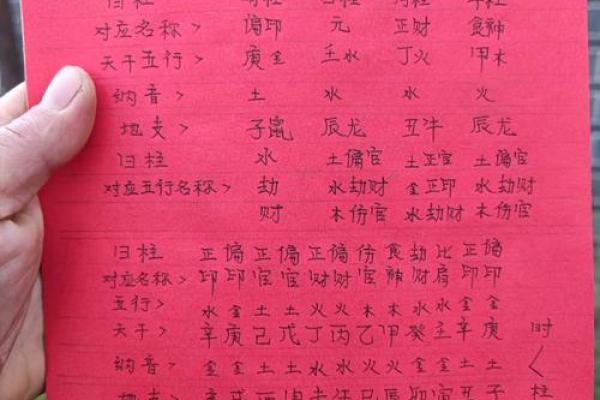 归柱 时柱 日柱 月柱 年柱
对应名称> 偏印 元 正财 食神
天干五行> 庚金 壬水 丁火 甲木
纳音> 土 水 水 火
地支> 子鼠 辰龙 丑牛 辰龙
归柱 水 土偏官 土正官 土偏官
对应五行名称> 劫 水劫财 金正印 水劫财
财 木伤官 水劫财 木伤官
归柱 正偏正偏正偏伤食劫比正偏
对应名称> 印印官官财财官神财肩印印
五行> 水金土土火火木木水水金金
天干> 辛庚己戊丁丙乙甲癸壬辛庚 时
纳音> 金金土土水火火金金土土
地支> 亥戌酉申未午巳辰卯寅丑子 柱